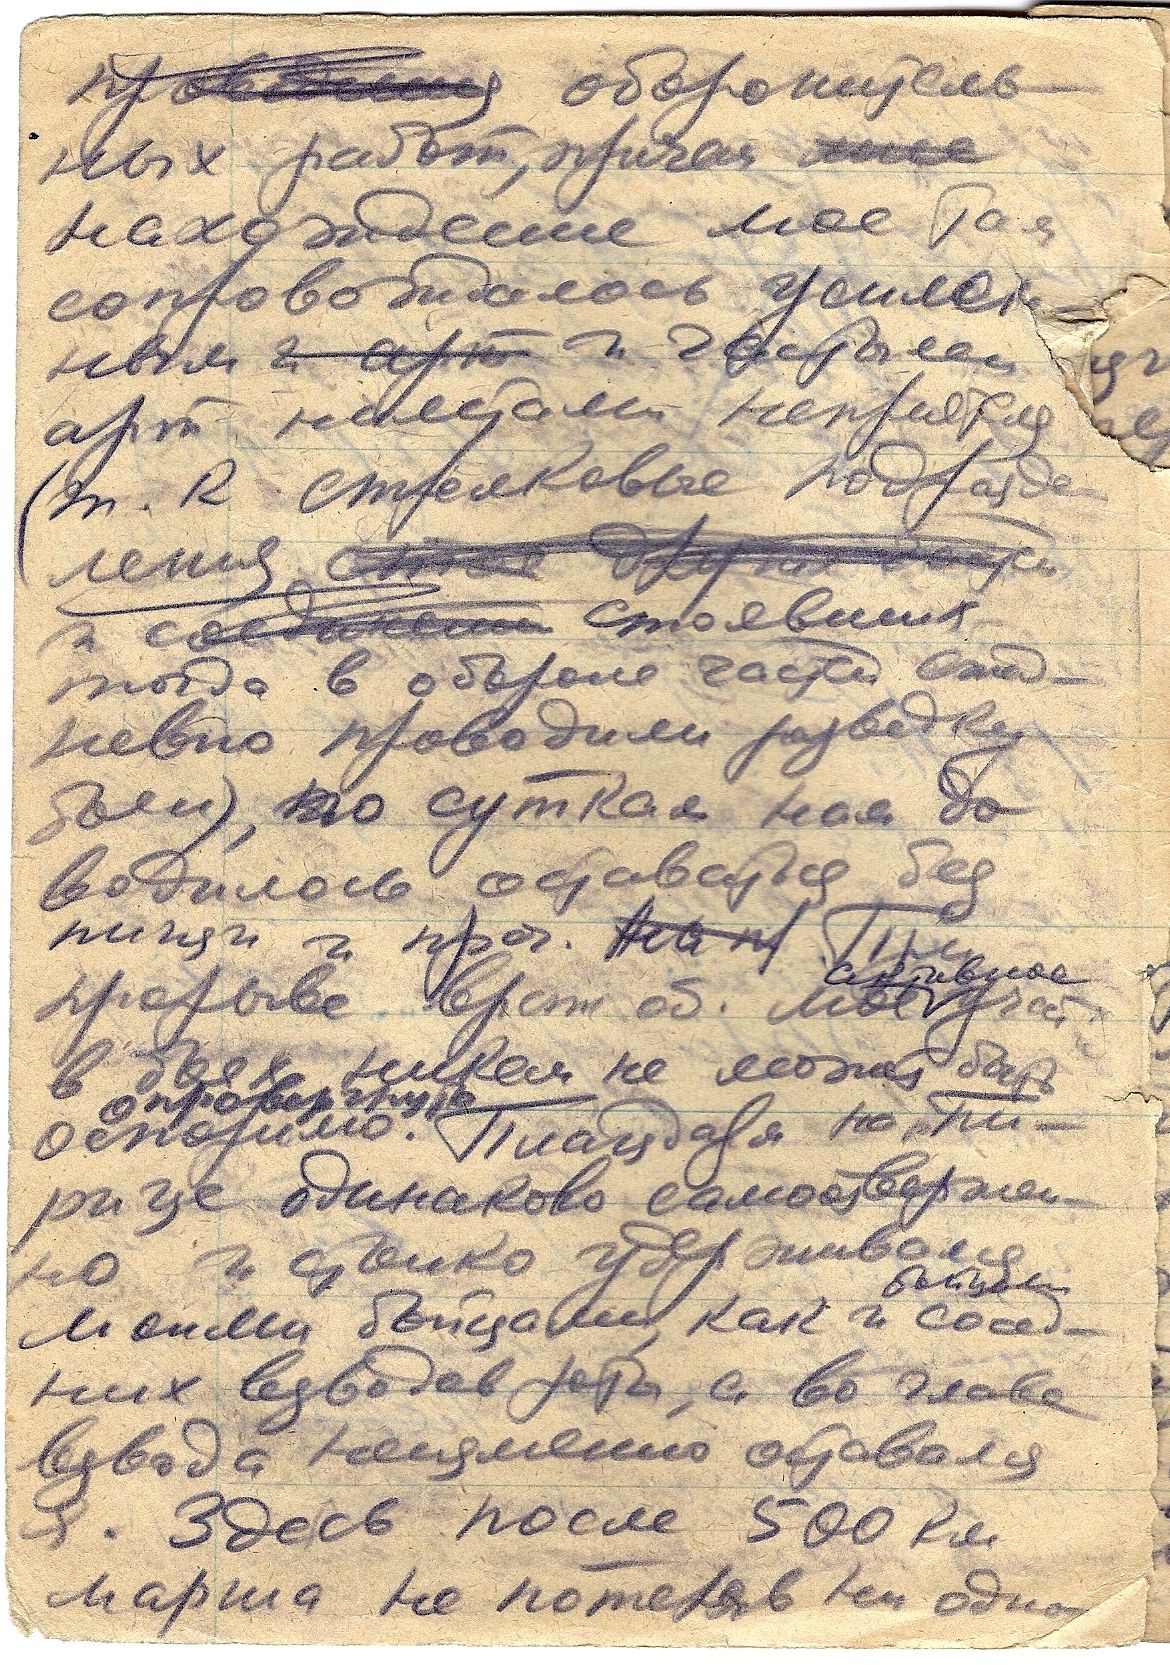 оборонитель-
ных работ, причем
нахождение мое там
сопровождалось усилен-
ным и арт и частыми
арт налетами неприятеля
(т. к стрелковые подразде-
ления
и стоявших
тогда в обороне частей ежед-
невно проводили разведку
боем), по суткам нам до
водилось оставаться без
пищи и проч. При
прорыве враж об. мое активное участ.
в боях никем не может быть
опровергнуто
оспоримо. Плацдарм на "Ти-
рице одинаково самоотвержен-
но и стойко удерживался
моими бойцами, как и бойцами сосед-
них взводов роты, а во главе
взвода неизменно оставался
я. Здесь после 500 км
марша не потеряв ни одно-